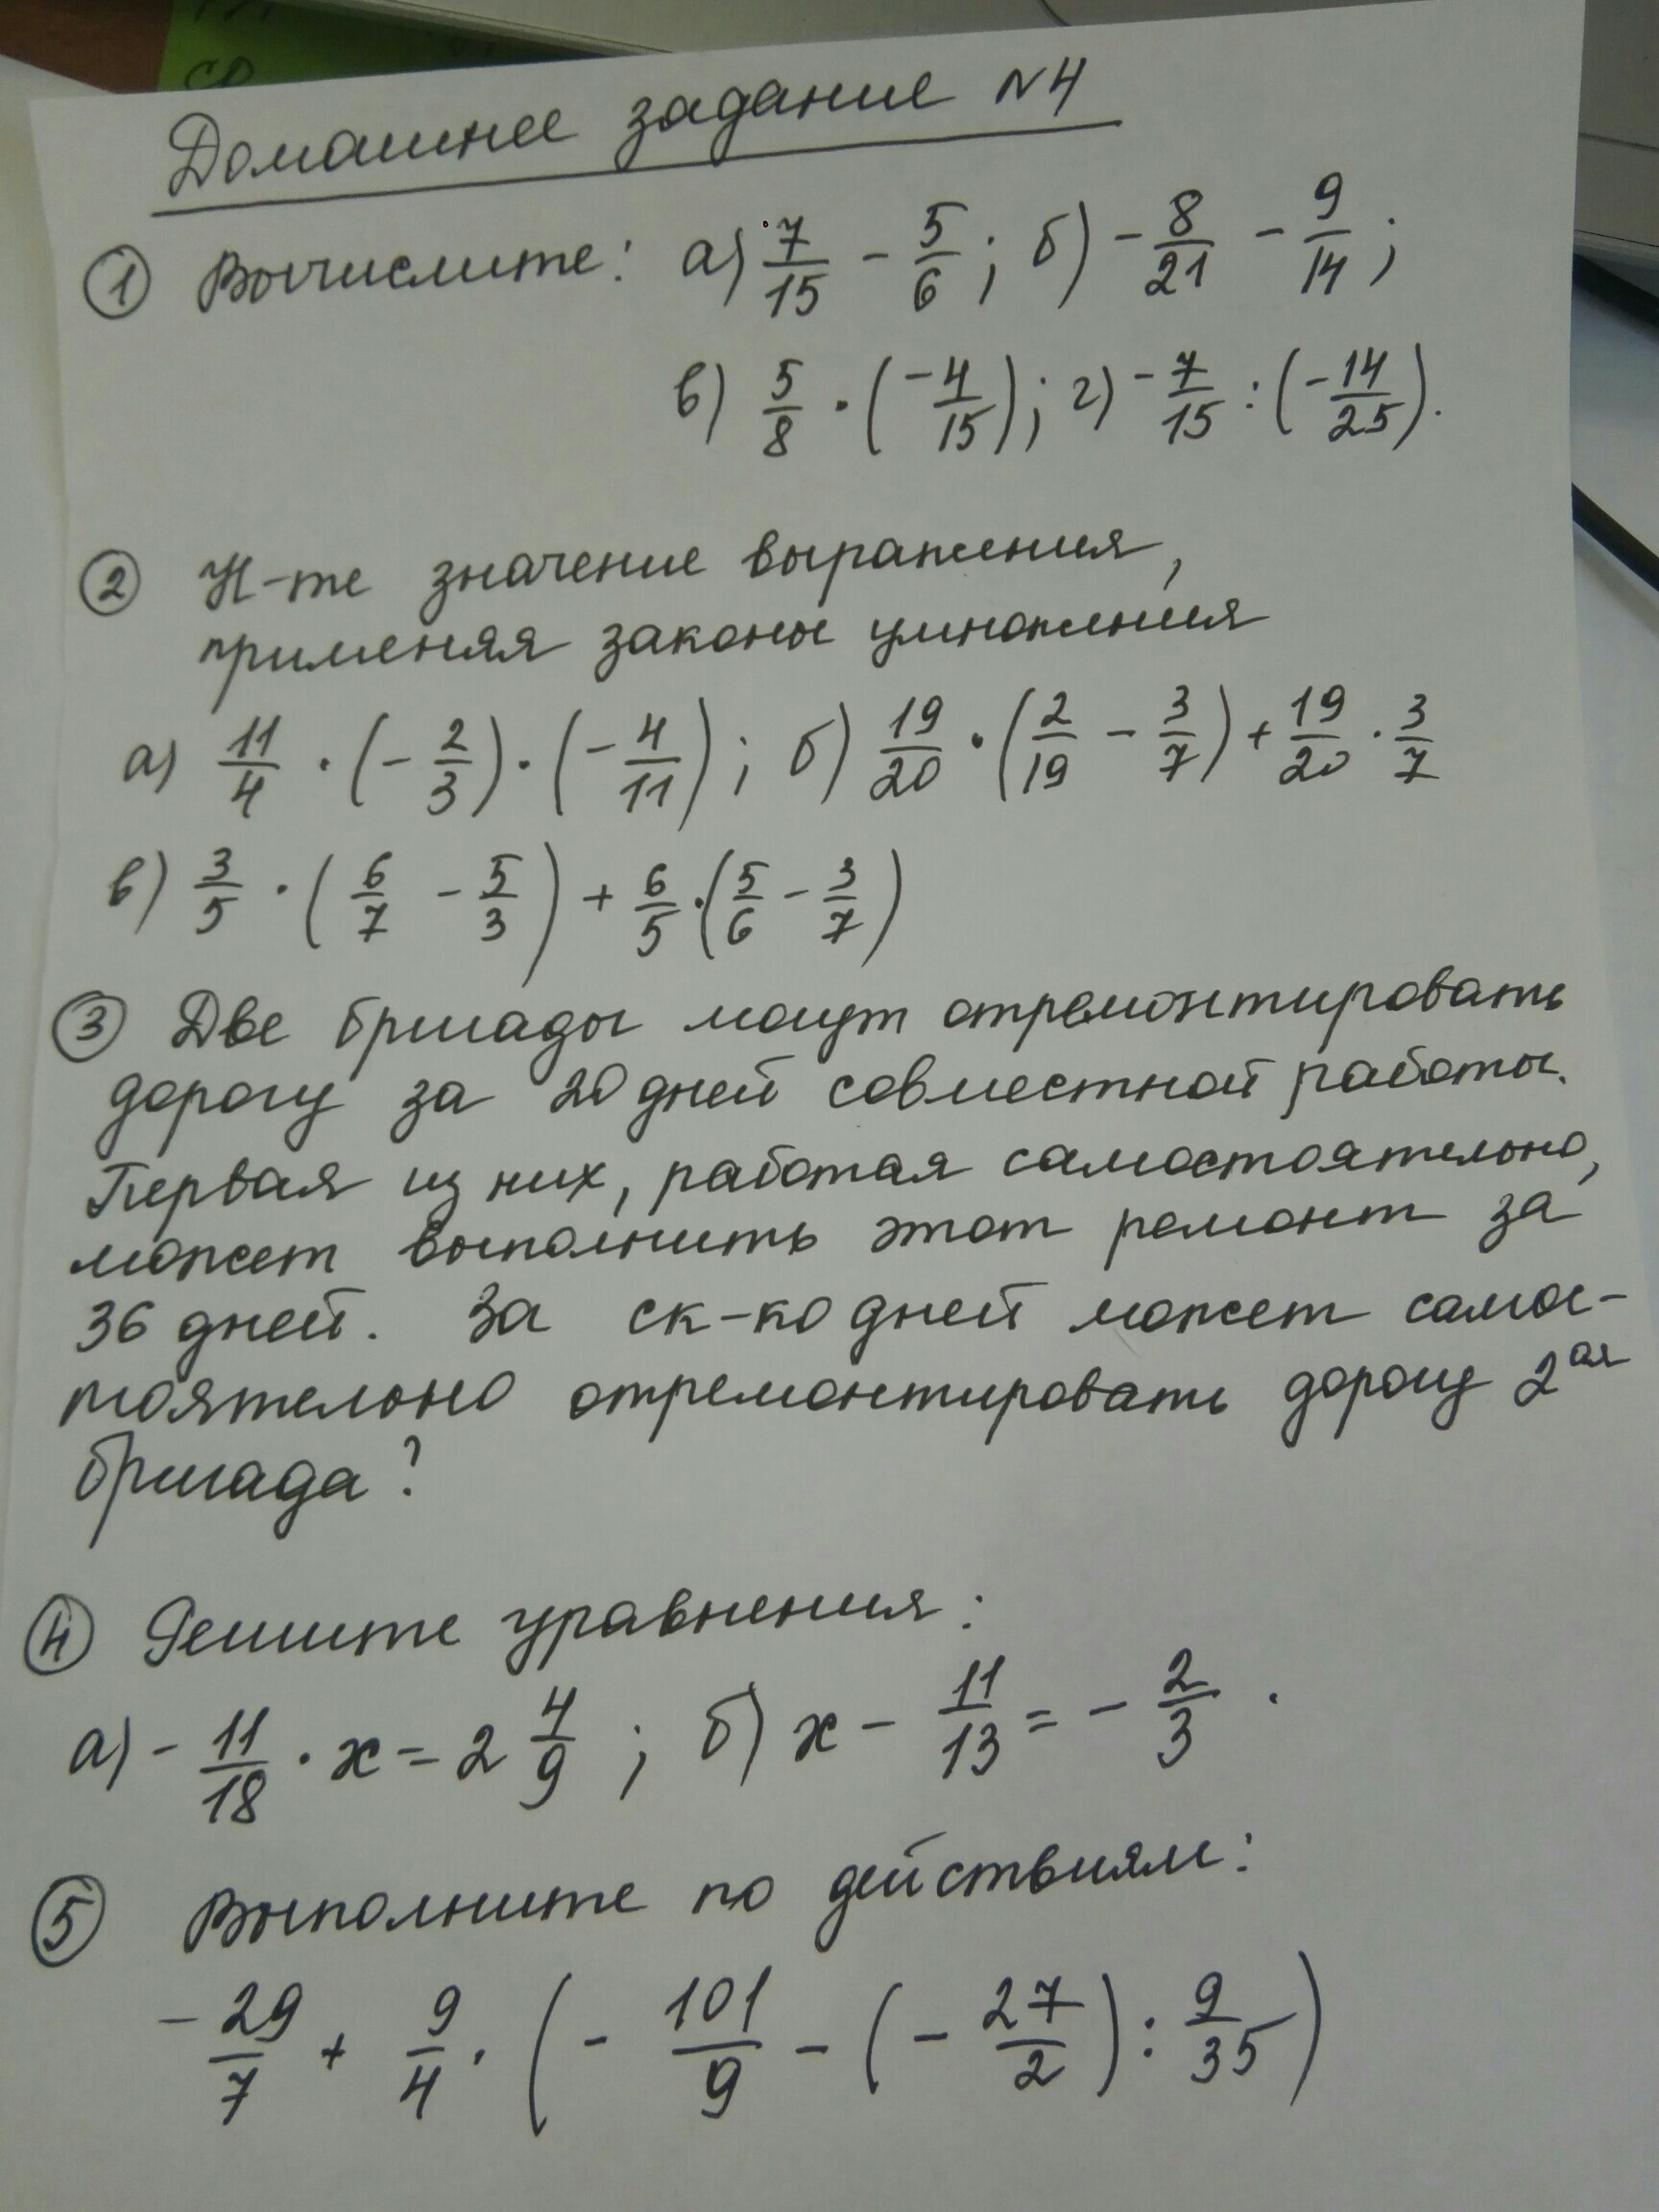 СР
Домашнее задание №4
① Вычислите: а) 7/15 - 5/6; б) -8/21 - 9/14;
в) 5/8 · (-4/15); г) -7/15 : (-14/25).
② Н-те значение выражения,
применяя законы умножения
а) 11/4 · (-2/3) · (-4/11); б) 19/20 · (2/19 - 3/7) + 19/20 · 3/7
в) 3/5 · (6/7 - 5/3) + 6/5 · (5/6 - 3/7)
③ Две бригады могут отремонтировать
дорогу за 20 дней совместной работы.
Первая из них, работая самостоятельно,
может выполнить этот ремонт за
36 дней. За ск-ко дней может самос-
тоятельно отремонтировать дорогу 2ая
бригада?
④ Решите уравнения:
а) -11/18 · x = 2 4/9; б) x - 11/13 = -2/3.
⑤ Выполните по действиям:
-29/7 + 9/4 · (-101/9 - (-27/2) : 9/35)